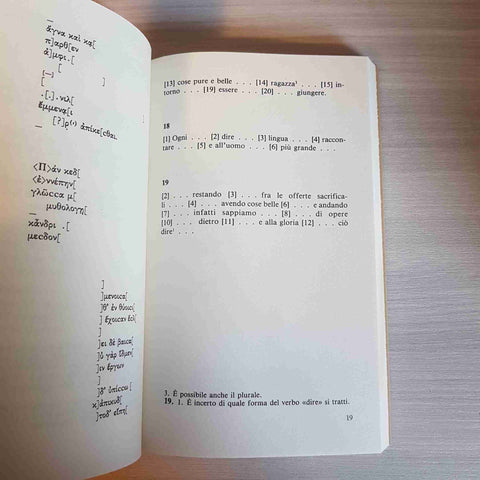 ἄγνα καὶ κα[
π]αρθ[εν
ἀ]μφι.[
[
]
[
.[.].νιλ[
ἔμμενα[ι
[?]ρ(')ἀπίκε[σθαι.
⟨Π⟩ὰν κεδ[
⟨ἐ⟩ννέπην[
γλῶσσα μ[
μυθολογη[
κἄνδρι .[
μεσδον[
]
]μενοισα[
]θ' ἐν θύοισι[
] ἔχοισαν ἔσλ[
]
]ει δὲ βαισα[
]ὺ γὰρ ἴδμεν[
]ιν ἔργων[
]
]δ' ὑπίσσω [
κ]ἀπικυδ[
]τοδ' εἴπη[
[13] cose pure e belle . . . [14] ragazza³ . . . [15] in-
torno . . . [19] essere . . . [20] . . . giungere.
18
[1] Ogni . . . [2] dire . . . [3] lingua . . . [4] raccon-
tare . . . [5] e all'uomo . . . [6] più grande . . .
19
[2] . . . restando [3] . . . fra le offerte sacrifica-
li . . . [4] . . . avendo cose belle [6] . . . e andando
[7] . . . infatti sappiamo . . . [8] . . . di opere
[10] . . . dietro [11] . . . e alla gloria [12] . . . ciò
dire¹ . . .
3. È possibile anche il plurale.
19. 1. È incerto di quale forma del verbo «dire» si tratti.
19